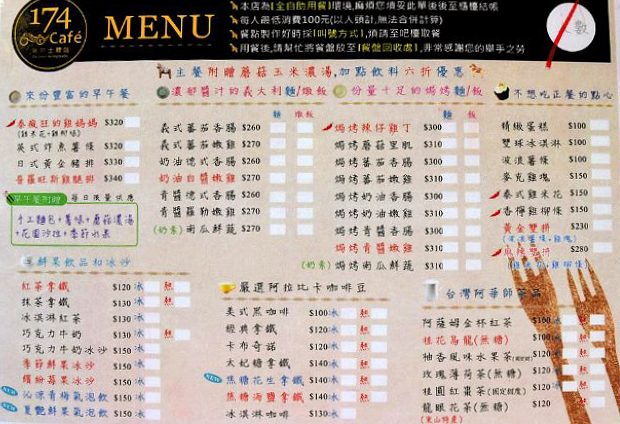 174 Café
MENU
本店為【全自助用餐】環境,麻煩您填妥此單後後至櫃檯結帳
每人最低消費100元(以人頭計,無法合併計算)
餐點製作好時採【叫號方式】,請領至吧檯取餐
用餐後,請幫忙將餐盤放至【餐盤回收處】,非常感謝您的舉手之勞
人數
主餐附贈蘑菇玉米濃湯,加點飲料六折優惠
來份豐富的早午餐
泰瘋狂的雞媽媽 $320
英式炸魚薯條 $320
日式黃金豬排 $330
普羅旺斯雞腿排 $340
早午餐附贈 每日限量供應
手工麵包+薯條+蘑菇濃湯
+花園沙拉+季節水果
濃郁醬汁的義大利麵/燉飯
麵 燉飯
義式蕃茄香腸 $260
義式蕃茄嫩雞 $270
奶油德式香腸 $260
奶油白醬嫩雞 $270
青醬德式香腸 $260
青醬羅勒嫩雞 $270
(奶素) 南瓜鮮蔬 $270
份量十足的焗烤麵/飯
麵 飯
焗烤辣仔雞丁 $300
焗烤蘑菇里肌 $310
焗烤蕃茄香腸 $300
焗烤蕃茄嫩雞 $310
焗烤奶油香腸 $300
焗烤奶油嫩雞 $310
焗烤青醬香腸 $300
焗烤青醬嫩雞 $310
(奶素) 焗烤南瓜鮮蔬 $310
不想吃正餐的點心
精緻蛋糕 $100
雙球冰淇淋 $100
波浪薯條 $100
麥克雞塊 $150
泰式雞米花 $150
香檸雞柳條 $150
黃金雙拼 $230
(波浪薯條+雞塊)
麻辣雙拼 $280
(雞米花+雞柳條)
季鮮果飲品和冰沙
紅茶拿鐵 $120 冰 熱
抹茶拿鐵 $130 冰 熱
冰淇淋紅茶 $130 冰
巧克力牛奶 $130 冰 熱
巧克力牛奶冰沙 $150 冰
季節鮮果冰沙 $150 冰
繽紛莓果冰沙 $150 冰
NEW 沁涼青梅氣泡飲 $150 冰
NEW 夏艷鮮果氣泡飲 $150 冰
嚴選阿拉比卡咖啡豆
美式黑咖啡 $100 冰 熱
經典拿鐵 $120 冰 熱
卡布奇諾 $120 冰 熱
太妃糖拿鐵 $140 冰 熱
NEW 焦糖花生拿鐵 $140 冰 熱
焦糖海鹽拿鐵 $140 冰 熱
冰淇淋咖啡 $130 冰
台灣阿華師茶品
阿薩姆金杯紅茶 $100 冰 熱
桂花烏龍(無糖) $100 冰 熱
柚香風味水果茶 $120 冰 熱
玫瑰薄荷茶(無糖) $120 熱
桂圓紅棗茶(固定甜度) $120 熱
龍眼花茶(無糖) $120 熱
(東山特產)